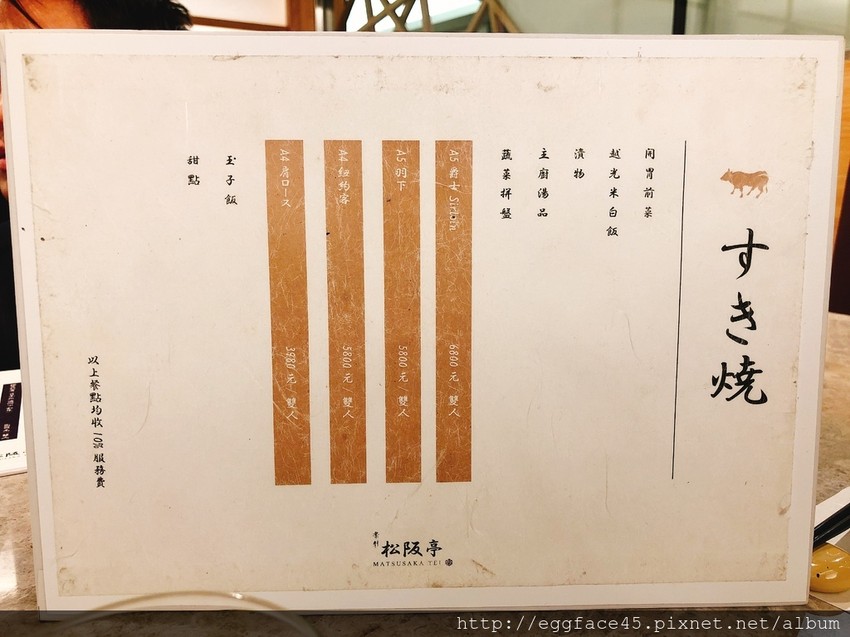 すき焼
開胃前菜
越光米白飯
漬物
主廚湯品
蔬菜拼盤
A5 爵士 Sirloin 6800 元/雙人
A5 羽下 5800 元/雙人
A4 紐約客 5800 元/雙人
A4 肩ロース 3980 元/雙人
玉子飯
甜點
以上餐點均收10%服務費
松阪亭
MATSUSAKA TEI
http://eggface45.pixnet.net/album